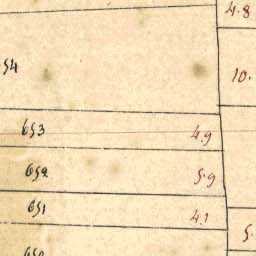 4.8
54 10.
653 4.9
652 5.9
651 4.1
5.
650